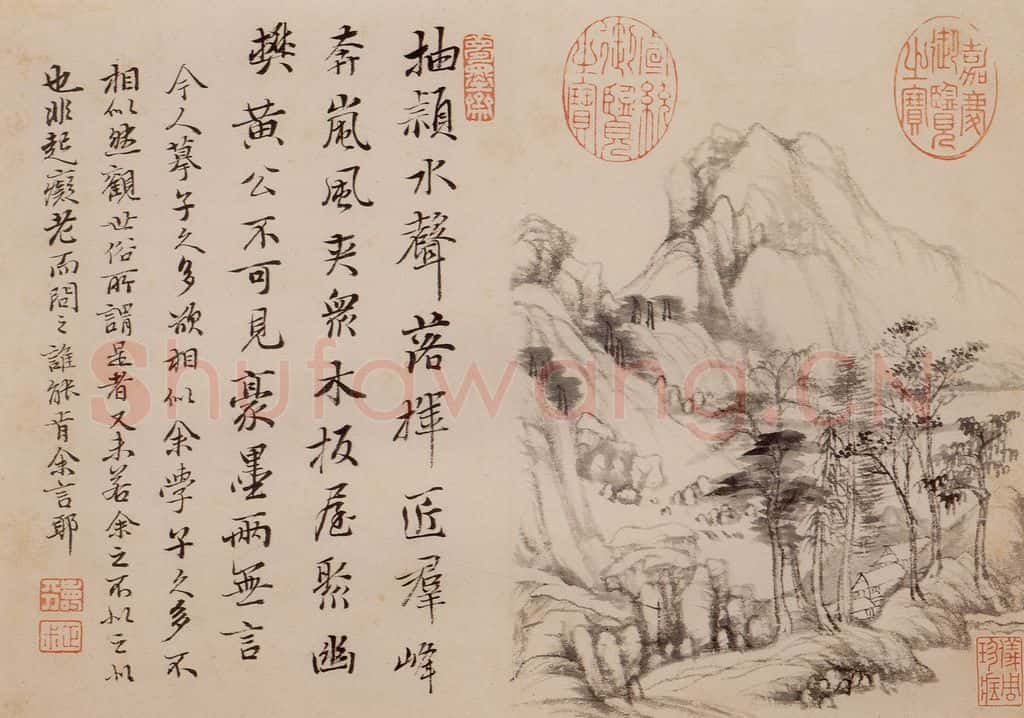 嘉慶御覽之寶
宣統御覽之寶
抽穎水聲落揮匠羣峰
奔嵐風夾衆木板屋聚幽
樊黃公不可見豪墨兩無言
今人摹子久多欲相似余學子久多不
相似然觀世俗所謂是者又未若余之不似之似
也非起癡老而問之誰能肯余言耶
儀周珍藏
Shufawang.CN